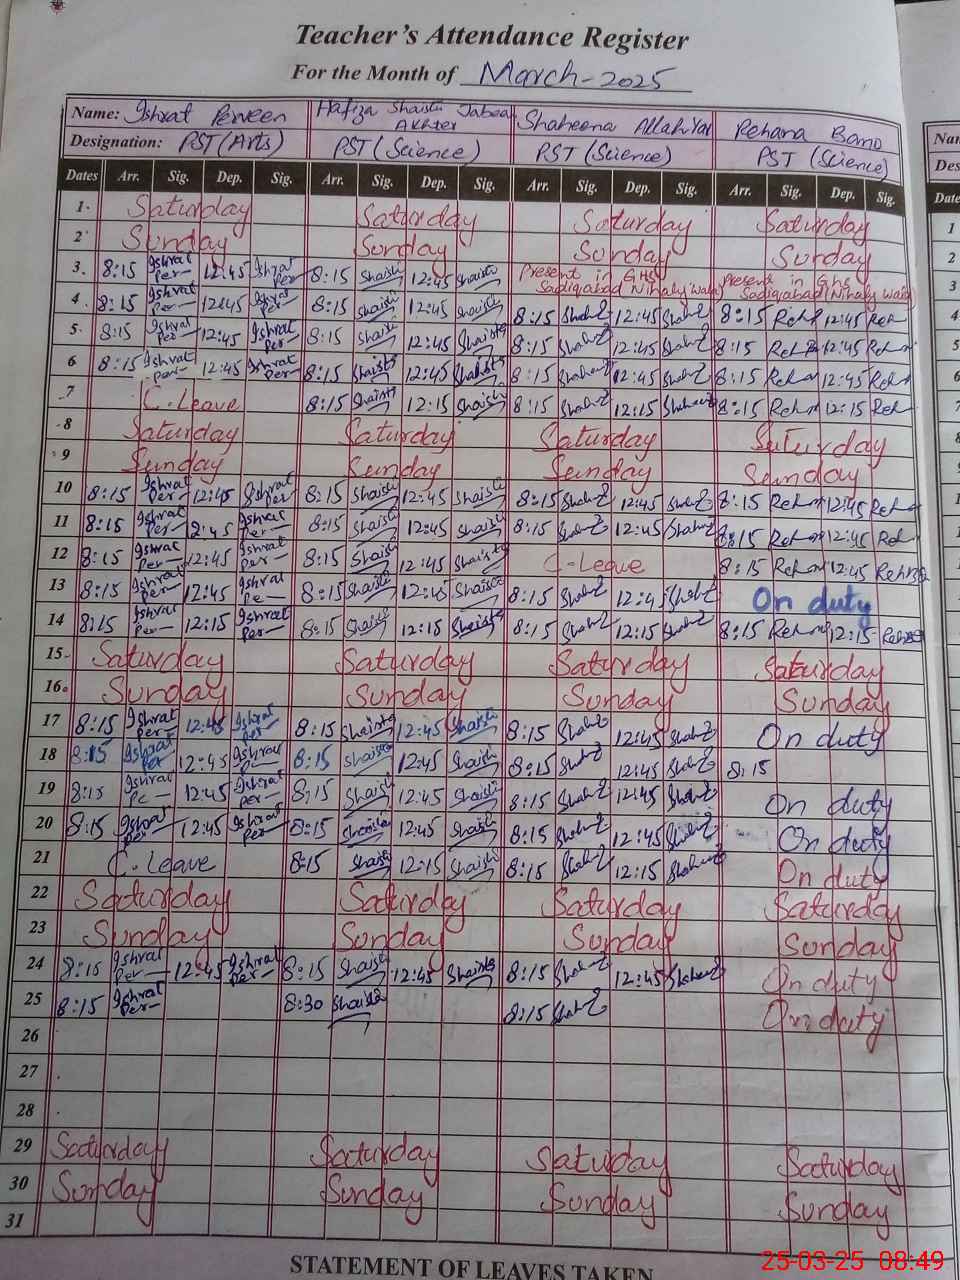 Teacher's Attendance Register
For the Month of March-2025
Name: Ishrat Perveen Hafiza Shaista Jabeen Akhter Shaheena Allah Yar Rehana Bano
Designation: PST (Arts) PST (Science) PST (Science) PST (Science)
Dates Arr. Sig. Dep. Sig. Arr. Sig. Dep. Sig. Arr. Sig. Dep. Sig. Arr. Sig. Dep. Sig.
1 Saturday Saturday Saturday Saturday
2 Sunday Sunday Sunday Sunday
3 8:15 Ishrat Per 12:45 Ishrat Per 8:15 Shaista 12:45 Shaista Present in GHS Sadiqabad Nihaly wala Present in GHS Sadiqabad Nihaly wala
4 8:15 Ishrat Per 12:45 Ishrat Per 8:15 Shaista 12:45 Shaista 8:15 12:45 8:15 Reh 12:45 Reh
5 8:15 Ishrat Per 12:45 Ishrat Per 8:15 Shaista 12:45 Shaista 8:15 12:45 8:15 Reh 12:45 Reh
6 8:15 Ishrat Per 12:45 Ishrat Per 8:15 Shaista 12:45 Shaista 8:15 12:45 8:15 Reh 12:45 Reh
7 C-Leave 8:15 Shaista 12:15 Shaista 8:15 12:15 8:15 Reh 12:15 Reh
8 Saturday Saturday Saturday Saturday
9 Sunday Sunday Sunday Sunday
10 8:15 Ishrat Per 12:45 Ishrat Per 8:15 Shaista 12:45 Shaista 8:15 12:45 8:15 Reh 12:45 Reh
11 8:15 Ishrat Per 12:45 Ishrat Per 8:15 Shaista 12:45 Shaista 8:15 12:45 8:15 Reh 12:45 Reh
12 8:15 Ishrat Per 12:45 Ishrat Per 8:15 Shaista 12:45 Shaista C-Leave 8:15 Reh 12:45 Reh
13 8:15 Ishrat Per 12:45 Ishrat Per 8:15 Shaista 12:45 Shaista 8:15 12:4 On duty
14 8:15 Ishrat Per 12:15 Ishrat Per 8:15 Shaista 12:15 Shaista 8:15 12:15 8:15 Reh 12:15 Reh
15 Saturday Saturday Saturday Saturday
16 Sunday Sunday Sunday Sunday
17 8:15 Ishrat Per 12:45 Ishrat Per 8:15 Shaista 12:45 Shaista 8:15 12:45 On duty
18 8:15 Ishrat Per 12:45 Ishrat Per 8:15 Shaista 12:45 Shaista 8:15 12:45 8:15
19 8:15 Ishrat Pe 12:45 Ishrat Per 8:15 Shaista 12:45 Shaista 8:15 12:45 On duty
20 8:15 Ishrat Per 12:45 Ishrat Per 8:15 Shaista 12:45 Shaista 8:15 12:45 On duty
21 C-Leave 8:15 Shaista 12:15 Shaista 8:15 12:15 On duty
22 Saturday Saturday Saturday Saturday
23 Sunday Sunday Sunday Sunday
24 8:15 Ishrat Per 12:45 Ishrat Per 8:15 Shaista 12:45 Shaista 8:15 12:45 On duty
25 8:15 Ishrat Per 8:30 Shaista 8:15 On duty
26
27
28
29 Saturday Saturday Saturday Saturday
30 Sunday Sunday Sunday Sunday
31
STATEMENT OF LEAVES TAKEN
25-03-25 08:49